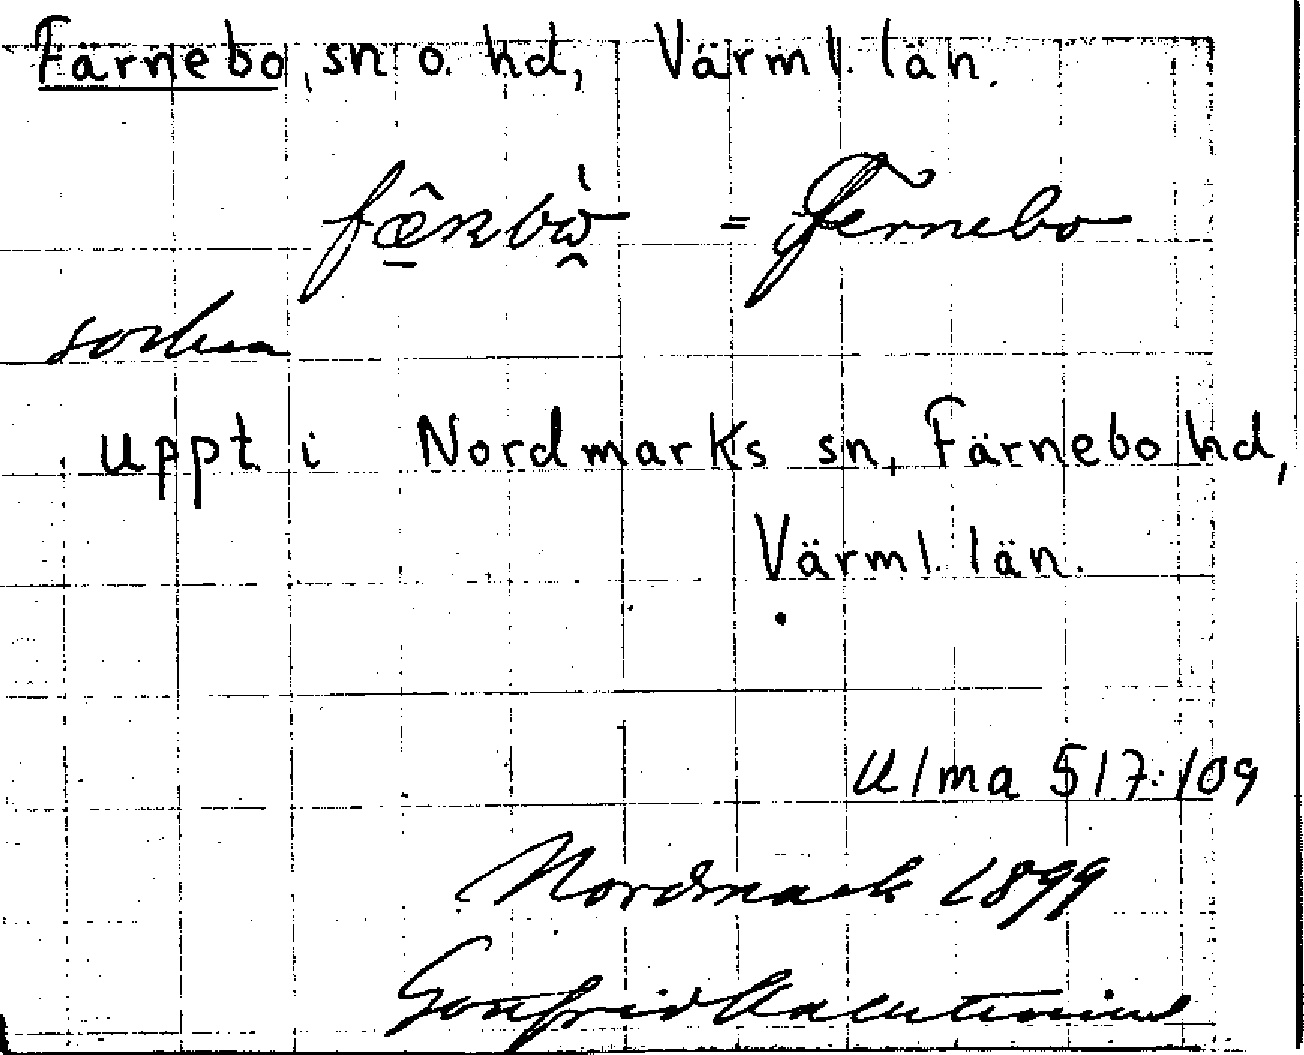 Färnebo, sn o. hd, Värml. län.
= Fernebo
socken
uppt i Nordmarks sn, Färnebo hd,
Värml. län.
Ulma 517:109
Nordmark 1899
Gottfrid Kallstenius